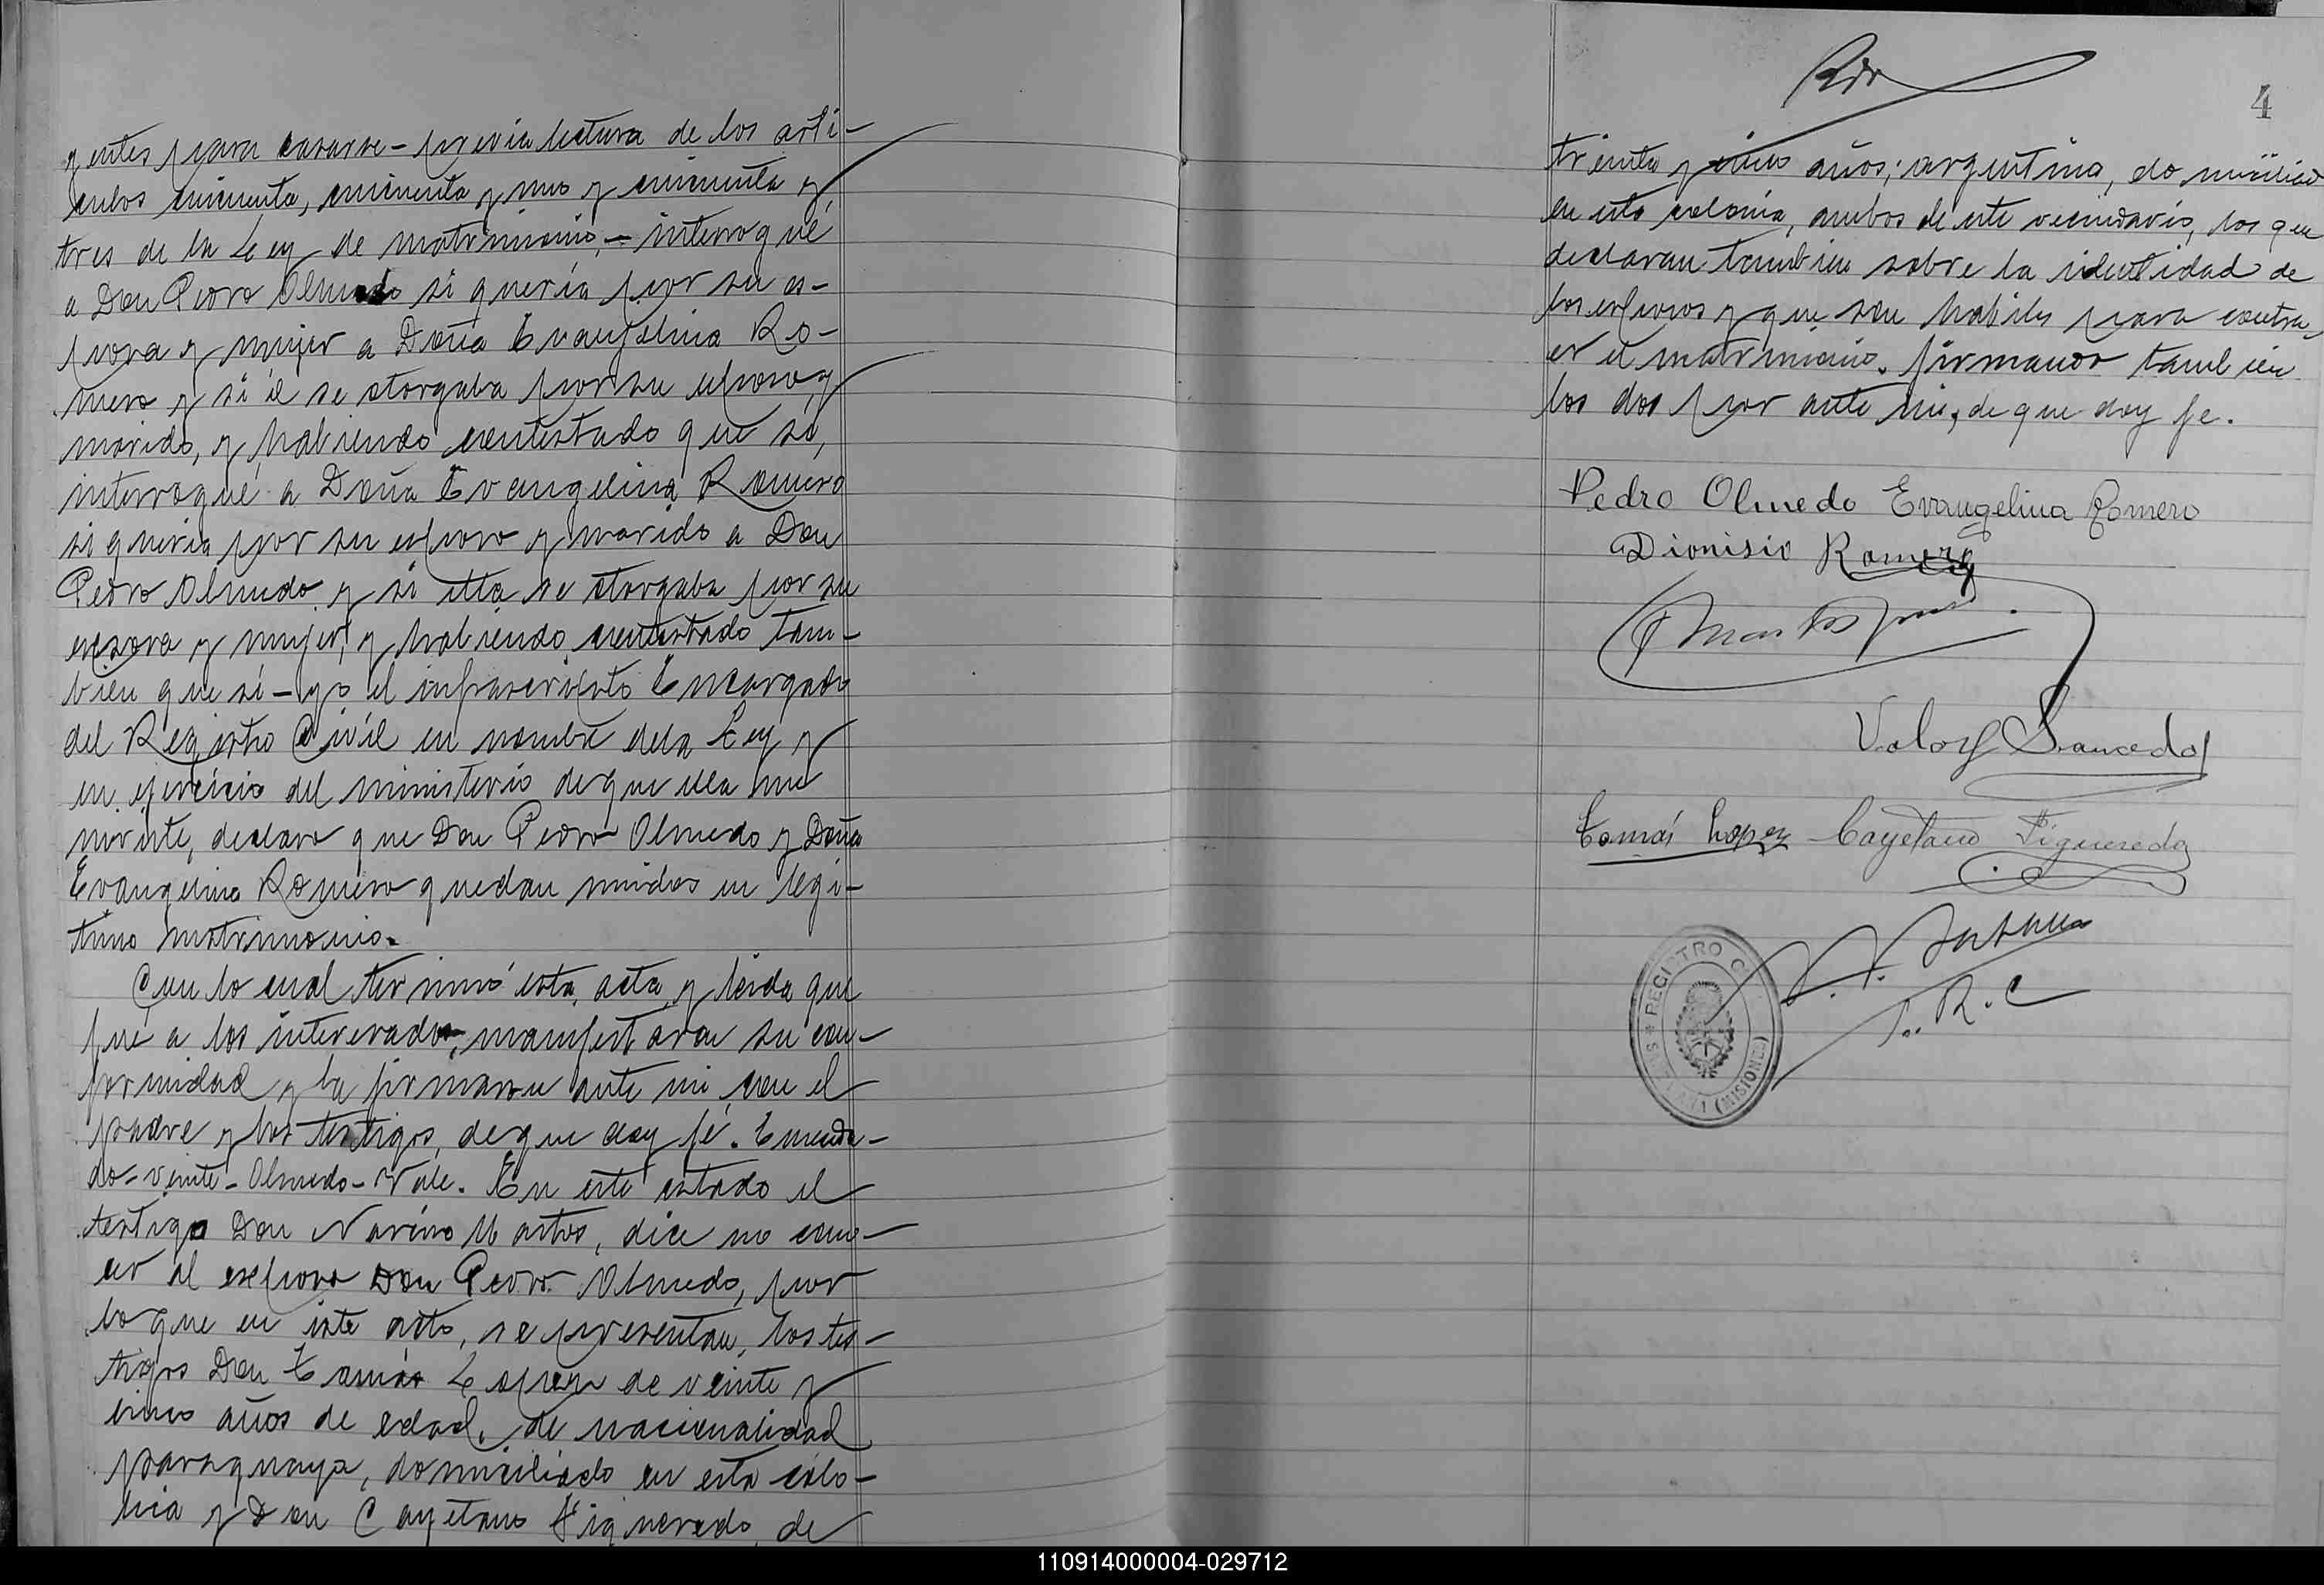 yentes para casarse - previa lectura de los arti-
culos cincuenta, cincuenta y uno y cincuenta y
tres de la Ley de matrimonio, - interrogué
a Don Pedro Olmedo si quería por su es-
posa y mujer a Doña Evangelina Ro-
mero y si él se otorgaba por su esposo y
marido, y habiendo contestado que sí,
interrogué a Doña Evangelina Romero
si queria por su esposo y marido a Don
Pedro Olmedo y si ella se otorgaba por su
esposa y mujer, y habiendo contestado tam-
bien que sí - yo el infrascripto Encargado
del Registro Civil en nombre dela Ley y
en ejercicio del ministerio de que ella me
inviste, declaro que Don Pedro Olmedo y Doña
Evangelina Romero quedan unidos en legi-
timo matrimonio.
Con lo cual terminó esta acta y leída que
fué a los interesados, manifestaron su con-
formidad y la firmaron ante mi con el
padre y los testigos, de que doy fé. Enmenda-
do - veinte - Olmedo - Vale. En este estado el
testigo Don Martos, dice no cono-
cer al esposo Don Pedro Olmedo, por
lo que en este acto, se presentan, los tes-
tigos Don Tomás Lopez de veinte y
cinco años de edad, de nacionalidad
paraguaya, domiciliado en esta colo-
nia y Don Cayetano Figueredo, de
4
treinta y cinco años; argentino, domiciliado
en esta colonia, ambos de este vecindario, los que
declaran tambien sobre la identidad de
los esposos y que son habiles para contra-
er el matrimonio, firmando tambien
los dos por ante mi, de que doy fe.
Pedro Olmedo Evangelina Romero
Dionisio Romero
Saucedo
Tomás Lopez Cayetano Figueredo
E. R. C
REGISTRO C
SANTA ANA (MISIONES)
110914000004-029712